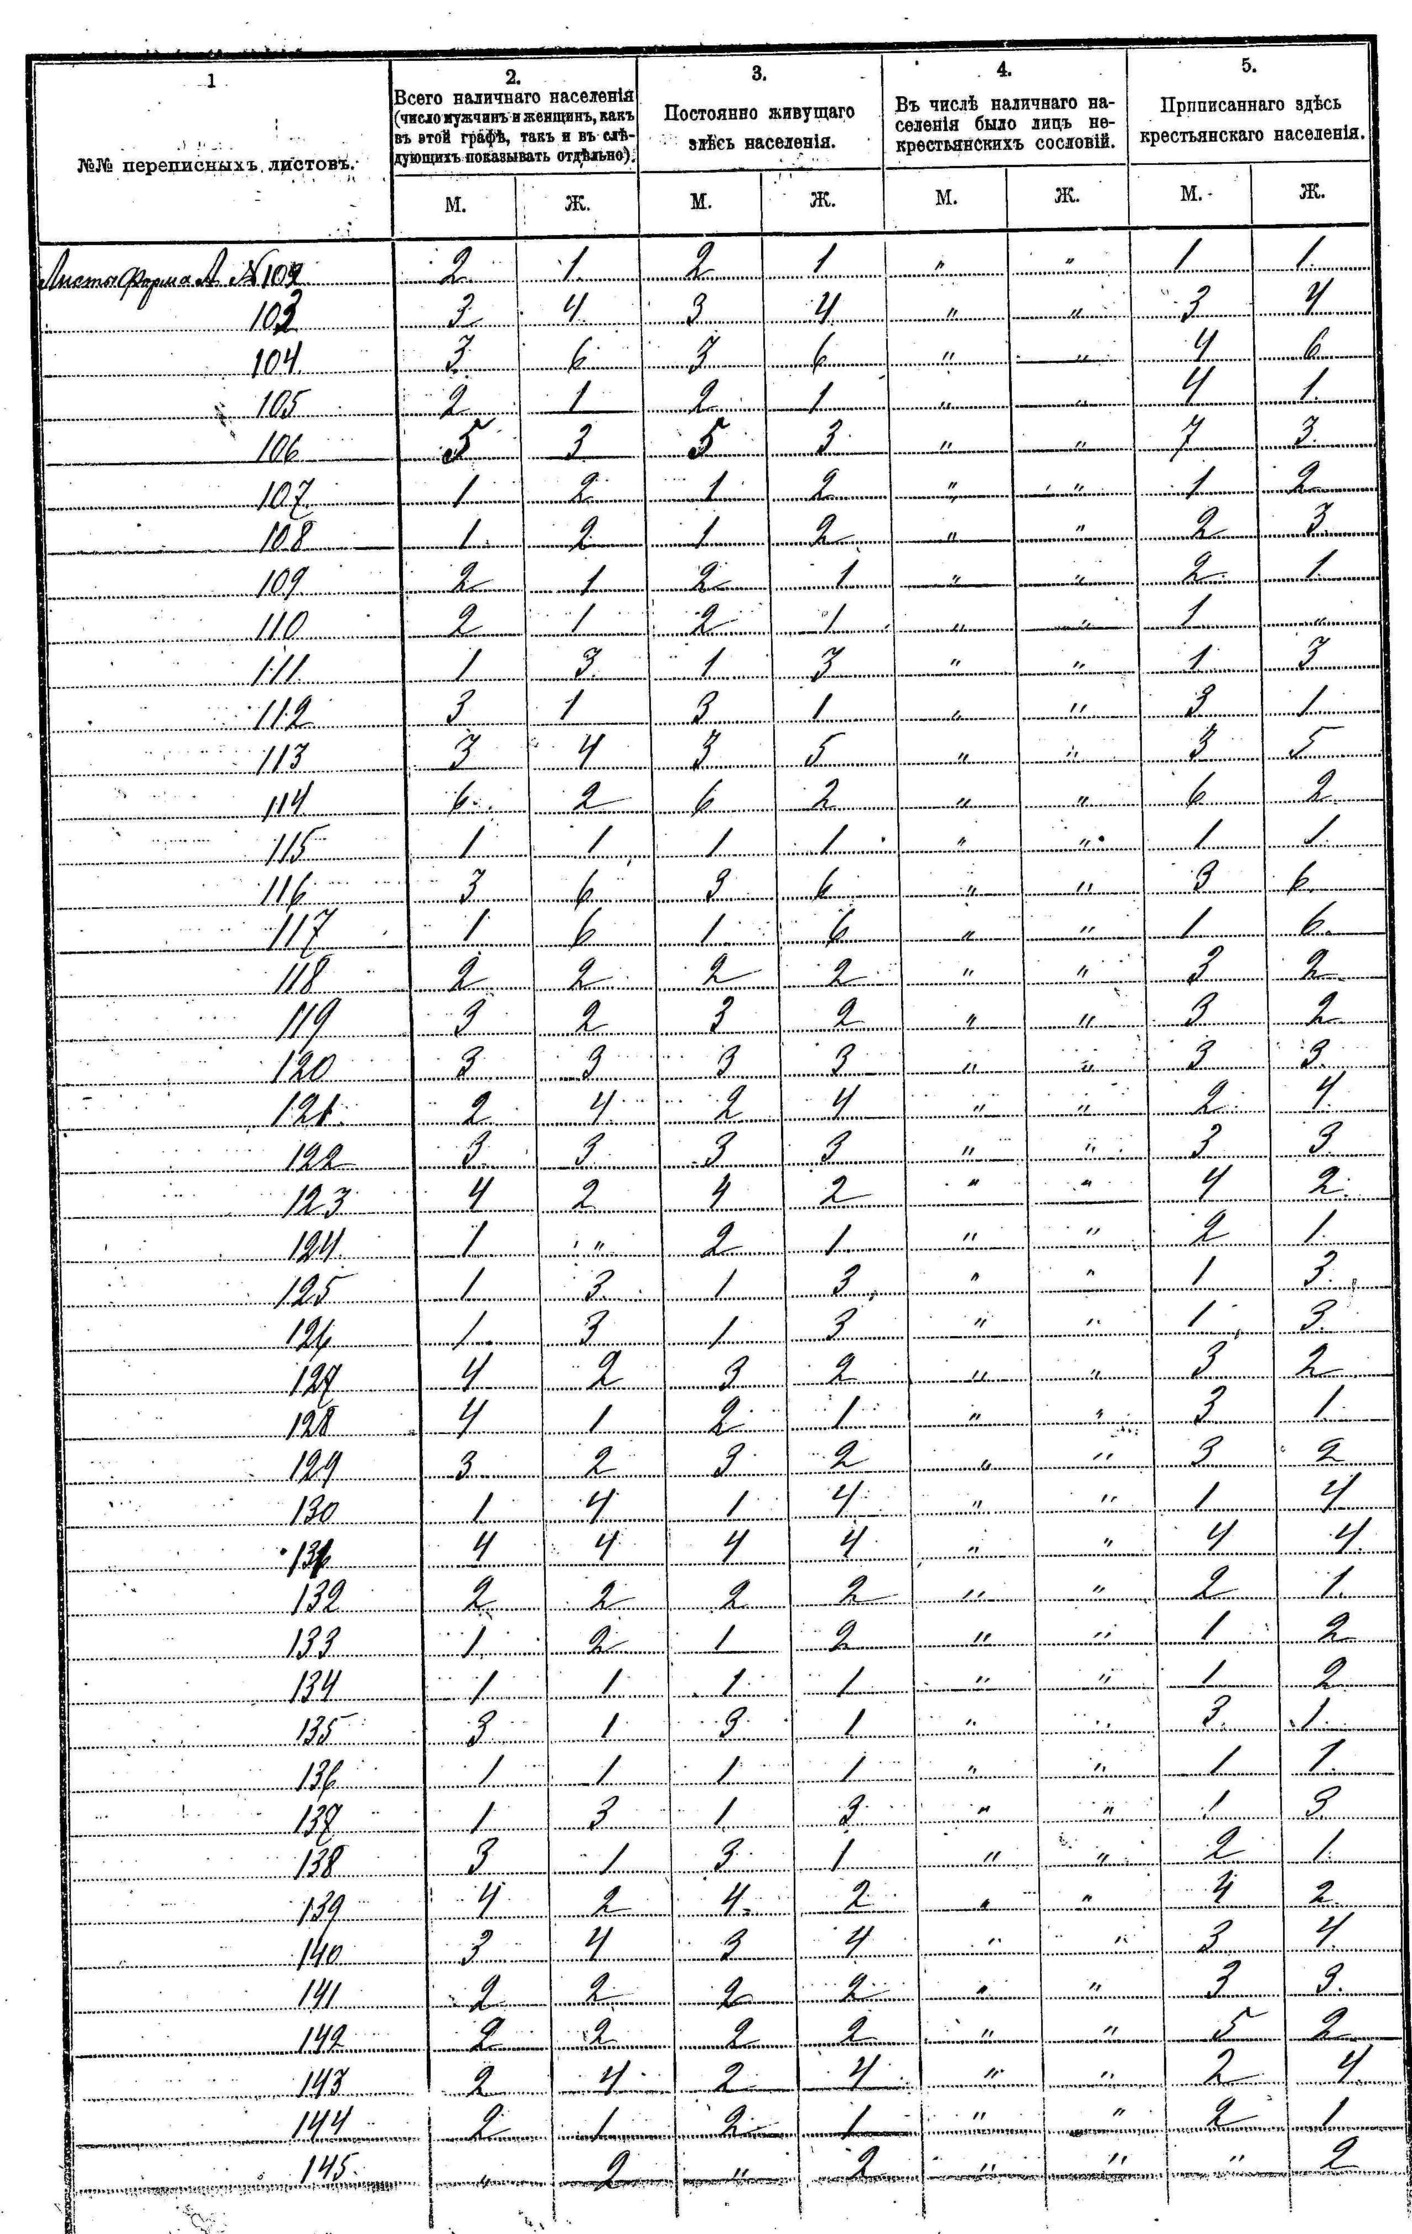 1 2. 3. 4. 5.
№№ переписныхъ листовъ. Всего наличнаго населенія (число мужчинъ и женщинъ, какъ въ этой графѣ, такъ и въ слѣдующихъ показывать отдѣльно). Постоянно живущаго здѣсь населенія. Въ числѣ наличнаго населенія было лицъ некрестьянскихъ сословій. Приписаннаго здѣсь крестьянскаго населенія.
М. Ж. М. Ж. М. Ж. М. Ж.
Листы форма А № 102 2 1 2 1 " " 1 1
103 3 4 3 4 " " 3 4
104 3 6 3 6 " " 4 6
105 2 1 2 1 " " 4 1
106 5 3 5 3 " " 7 3
107 1 2 1 2 " " 1 2
108 1 2 1 2 " " 2 3
109 2 1 2 1 " " 2 1
110 2 1 2 1 " " 1 "
111 1 3 1 3 " " 1 3
112 3 1 3 1 " " 3 1
113 3 4 3 5 " " 3 5
114 6 2 6 2 " " 6 2
115 1 1 1 1 " " 1 1
116 3 6 3 6 " " 3 6
117 1 6 1 6 " " 1 6
118 2 2 2 2 " " 3 2
119 3 2 3 2 " " 3 2
120 3 3 3 3 " " 3 3
121 2 4 2 4 " " 2 4
122 3 3 3 3 " " 3 3
123 4 2 4 2 " " 4 2
124 1 " 2 1 " " 2 1
125 1 3 1 3 " " 1 3
126 1 3 1 3 " " 1 3
127 4 2 3 2 " " 3 2
128 4 1 2 1 " " 3 1
129 3 2 3 2 " " 3 2
130 1 4 1 4 " " 1 4
131 4 4 4 4 " " 4 4
132 2 2 2 2 " " 2 1
133 1 2 1 2 " " 1 2
134 1 1 1 1 " " 1 2
135 3 1 3 1 " " 3 1
136 1 1 1 1 " " 1 1
137 1 3 1 3 " " 1 3
138 3 1 3 1 " " 2 1
139 4 2 4 2 " " 4 2
140 3 4 3 4 " " 3 4
141 2 2 2 2 " " 3 3
142 2 2 2 2 " " 5 2
143 2 4 2 4 " " 2 4
144 2 1 2 1 " " 2 1
145 " 2 " 2 " " " 2